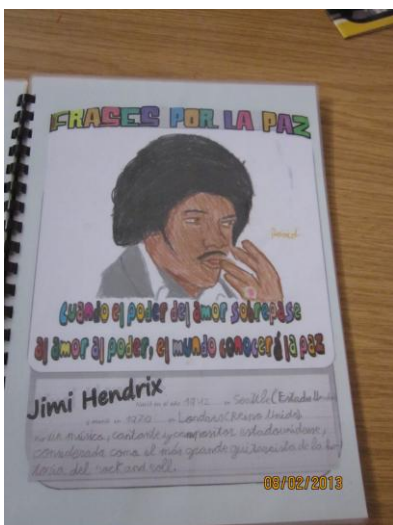 FRASES POR LA PAZ
cuando el poder del amor sobrepase
al amor al poder, el mundo conocerá la paz
Jimi Hendrix
nació en el año 1942 en Seattle (Estado Unid
y murió en 1970 en Londres (Reino Unido)
músico, cantante y compositor estadounidense,
considerado como el más grande guitarrista de la his
toria del rock and roll.
08/02/2013